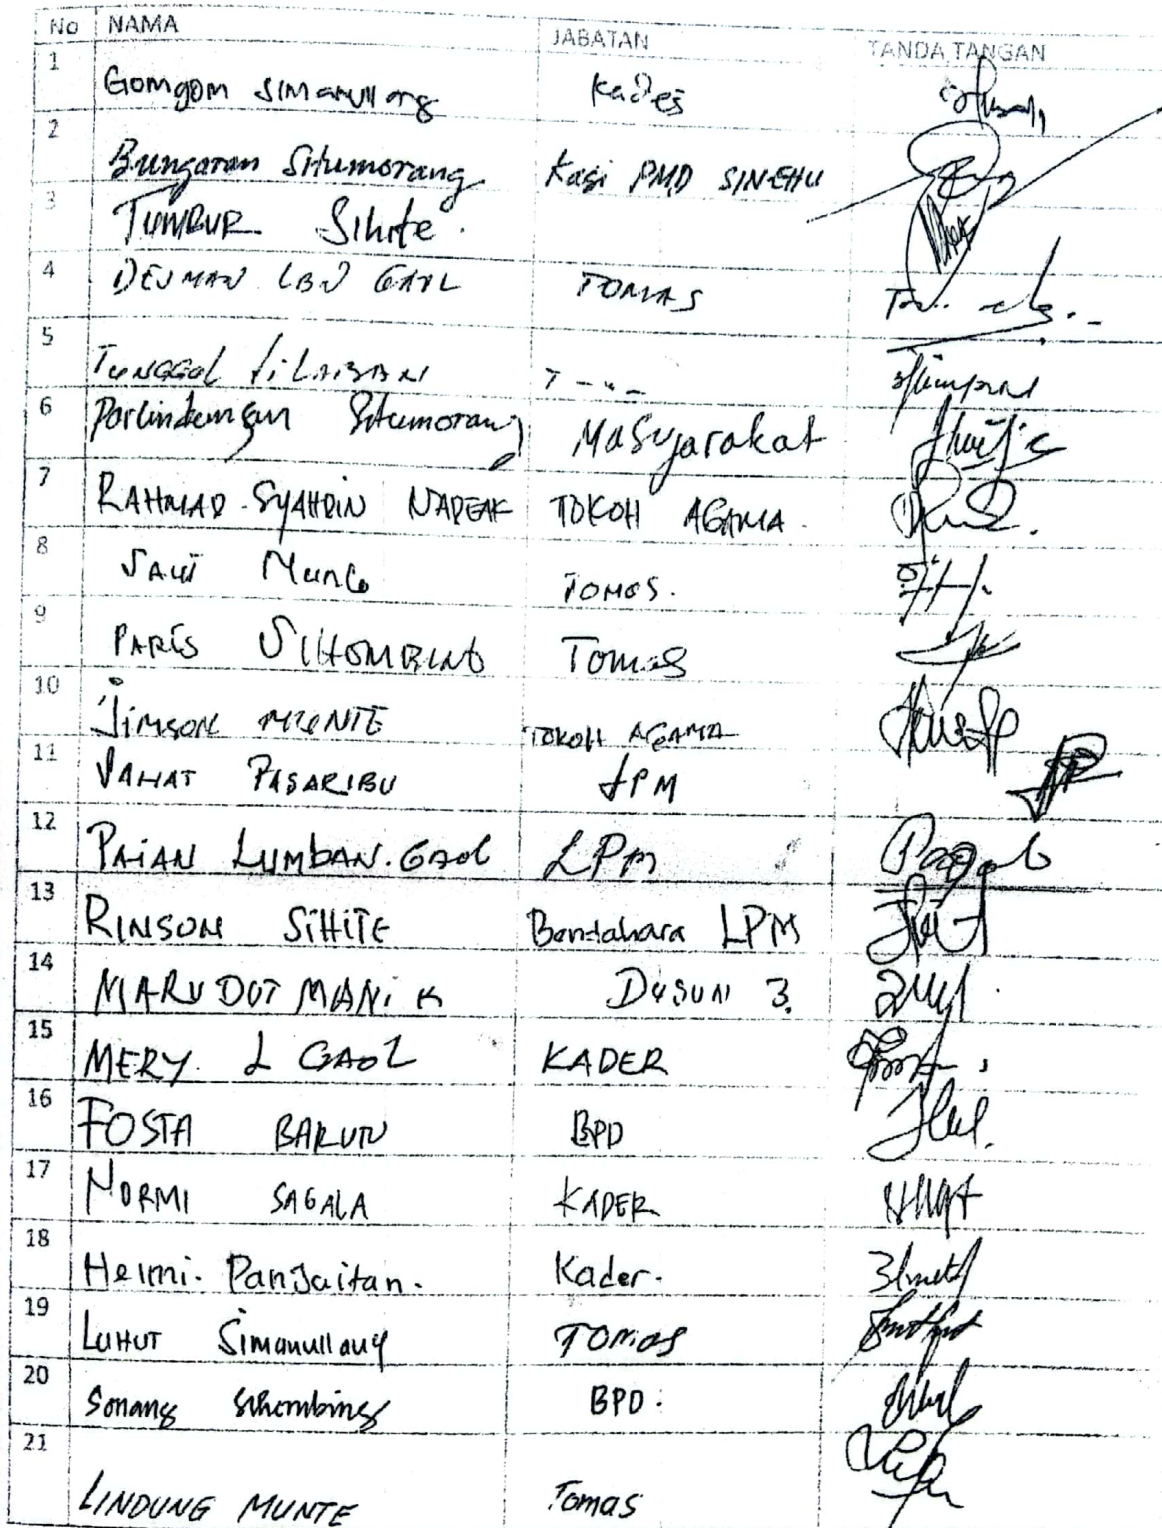 No NAMA JABATAN TANDA TANGAN
1 Gomgom Simanullang Kades
2 Bungaran Situmorang Kasi PMD SINEHU
3 TUMBUR Sihite.
4 DEJMAN LBN GAOL TOMAS
5 TUNGGOL SiLABAN T - " -
6 Parlindungan Situmorang Masyarakat
7 RAHMAD SYAHDIN NAPEAK TOKOH AGAMA.
8 SAUT Munte TOMAS.
9 PARIS SIHOMBING Tomas
10 JIMSON MUNTE TOKOH AGAMA
11 JAHAT PASARIBU LPM
12 PAIAN LUMBAN.GAOL LPM
13 RINSON SIHITE Bendahara LPM
14 MARUDUT MANIK DUSUN 3.
15 MERY. L GAOL KADER
16 FOSTA BARUTU BPD
17 NORMI SAGALA KADER
18 Helmi. Panjaitan. Kader.
19 LUHUT Simanullang TOMAS
20 Sonang Sihombing BPD.
21 LINDUNG MUNTE Tomas